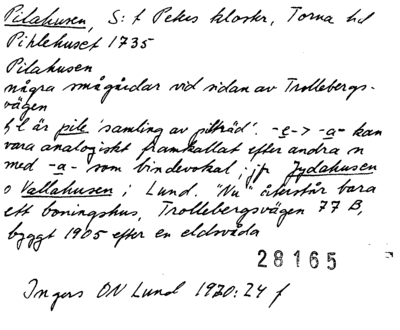 Pilahusen, S:t Peters kloster, Torna hd
Pihlehuset 1735
Pilahusen
några smågårdar vid sidan av Trollebergs-
vägen
fl är pile 'samling av pilträd'. -e- > -a- kan
vara analogiskt framkallat efter andra n
med -a- som bindevokal, jfr Jydahusen
o Vallahusen i Lund. "Nu" återstår bara
ett boningshus, Trollebergsvägen 77 B,
byggt 1905 efter en eldsvåda
28165
Ingers ON Lund 1970:24 f